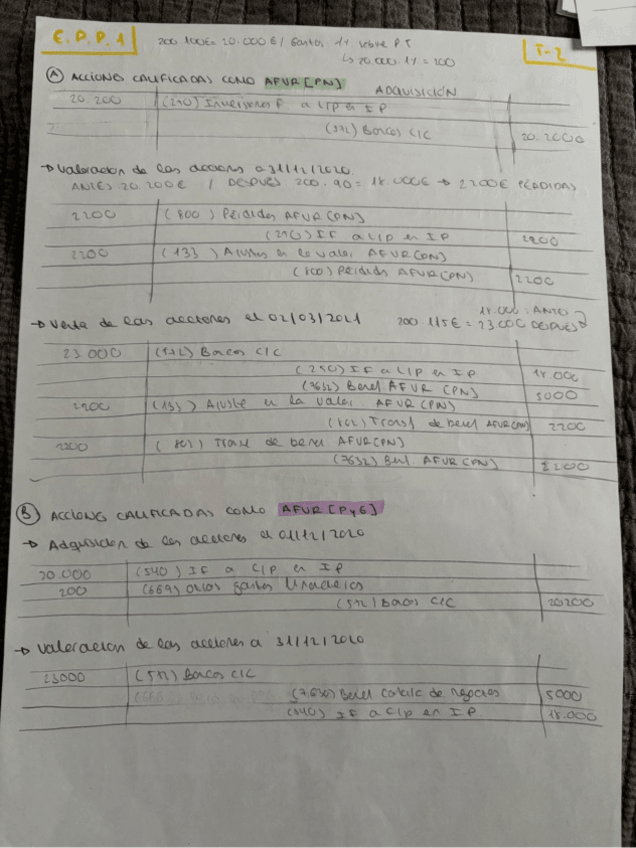 E.P.P.1
200·100€ = 20.000€ / Gastos 1% sobre PT
T-2
↳ 20.000·1% = 200
Ⓐ ACCIONES CALIFICADAS COMO AFVR [PN]
ADQUISICIÓN
20.200 (250) Inversiones F. a L/P en IP
(572) Bancos C/C 20.2000
→ Valoración de las acciones a 31/12/2020
ANTES 20.200€ / DESPUÉS 200·90 = 18.000€ → 2200€ PÉRDIDAS
2200 (800) Pérdidas AFVR (PN)
(250) IF a L/P en IP 2200
2200 (133) Ajustes en la valor AFVR (PN)
(800) Pérdidas AFVR (PN) 2200
18.000 ANTES
→ Venta de las acciones el 02/03/2021 200·115€ = 23.000 DESPUÉS
23.000 (572) Bancos C/C
(250) IF a L/P en IP 18.000
(7632) Benef AFVR (PN) 5000
2200 (133) Ajuste en la valor AFVR (PN)
(802) Transf de benef AFVR (PN) 2200
2200 (802) Transf de benef AFVR (PN)
(7632) Benf. AFVR (PN) 2200
Ⓑ ACCIONES CALIFICADAS COMO AFVR [PyG]
→ Adquisición de las acciones el 01/12/2020
20.000 (540) IF a C/P en IP
200 (669) Otros gastos financieros
(572) Bancos C/C 20200
→ Valoración de las acciones a 31/12/2020
23000 (572) Bancos C/C
(7630) Benef cartera de negocios 5000
(540) IF a C/P en IP 18.000